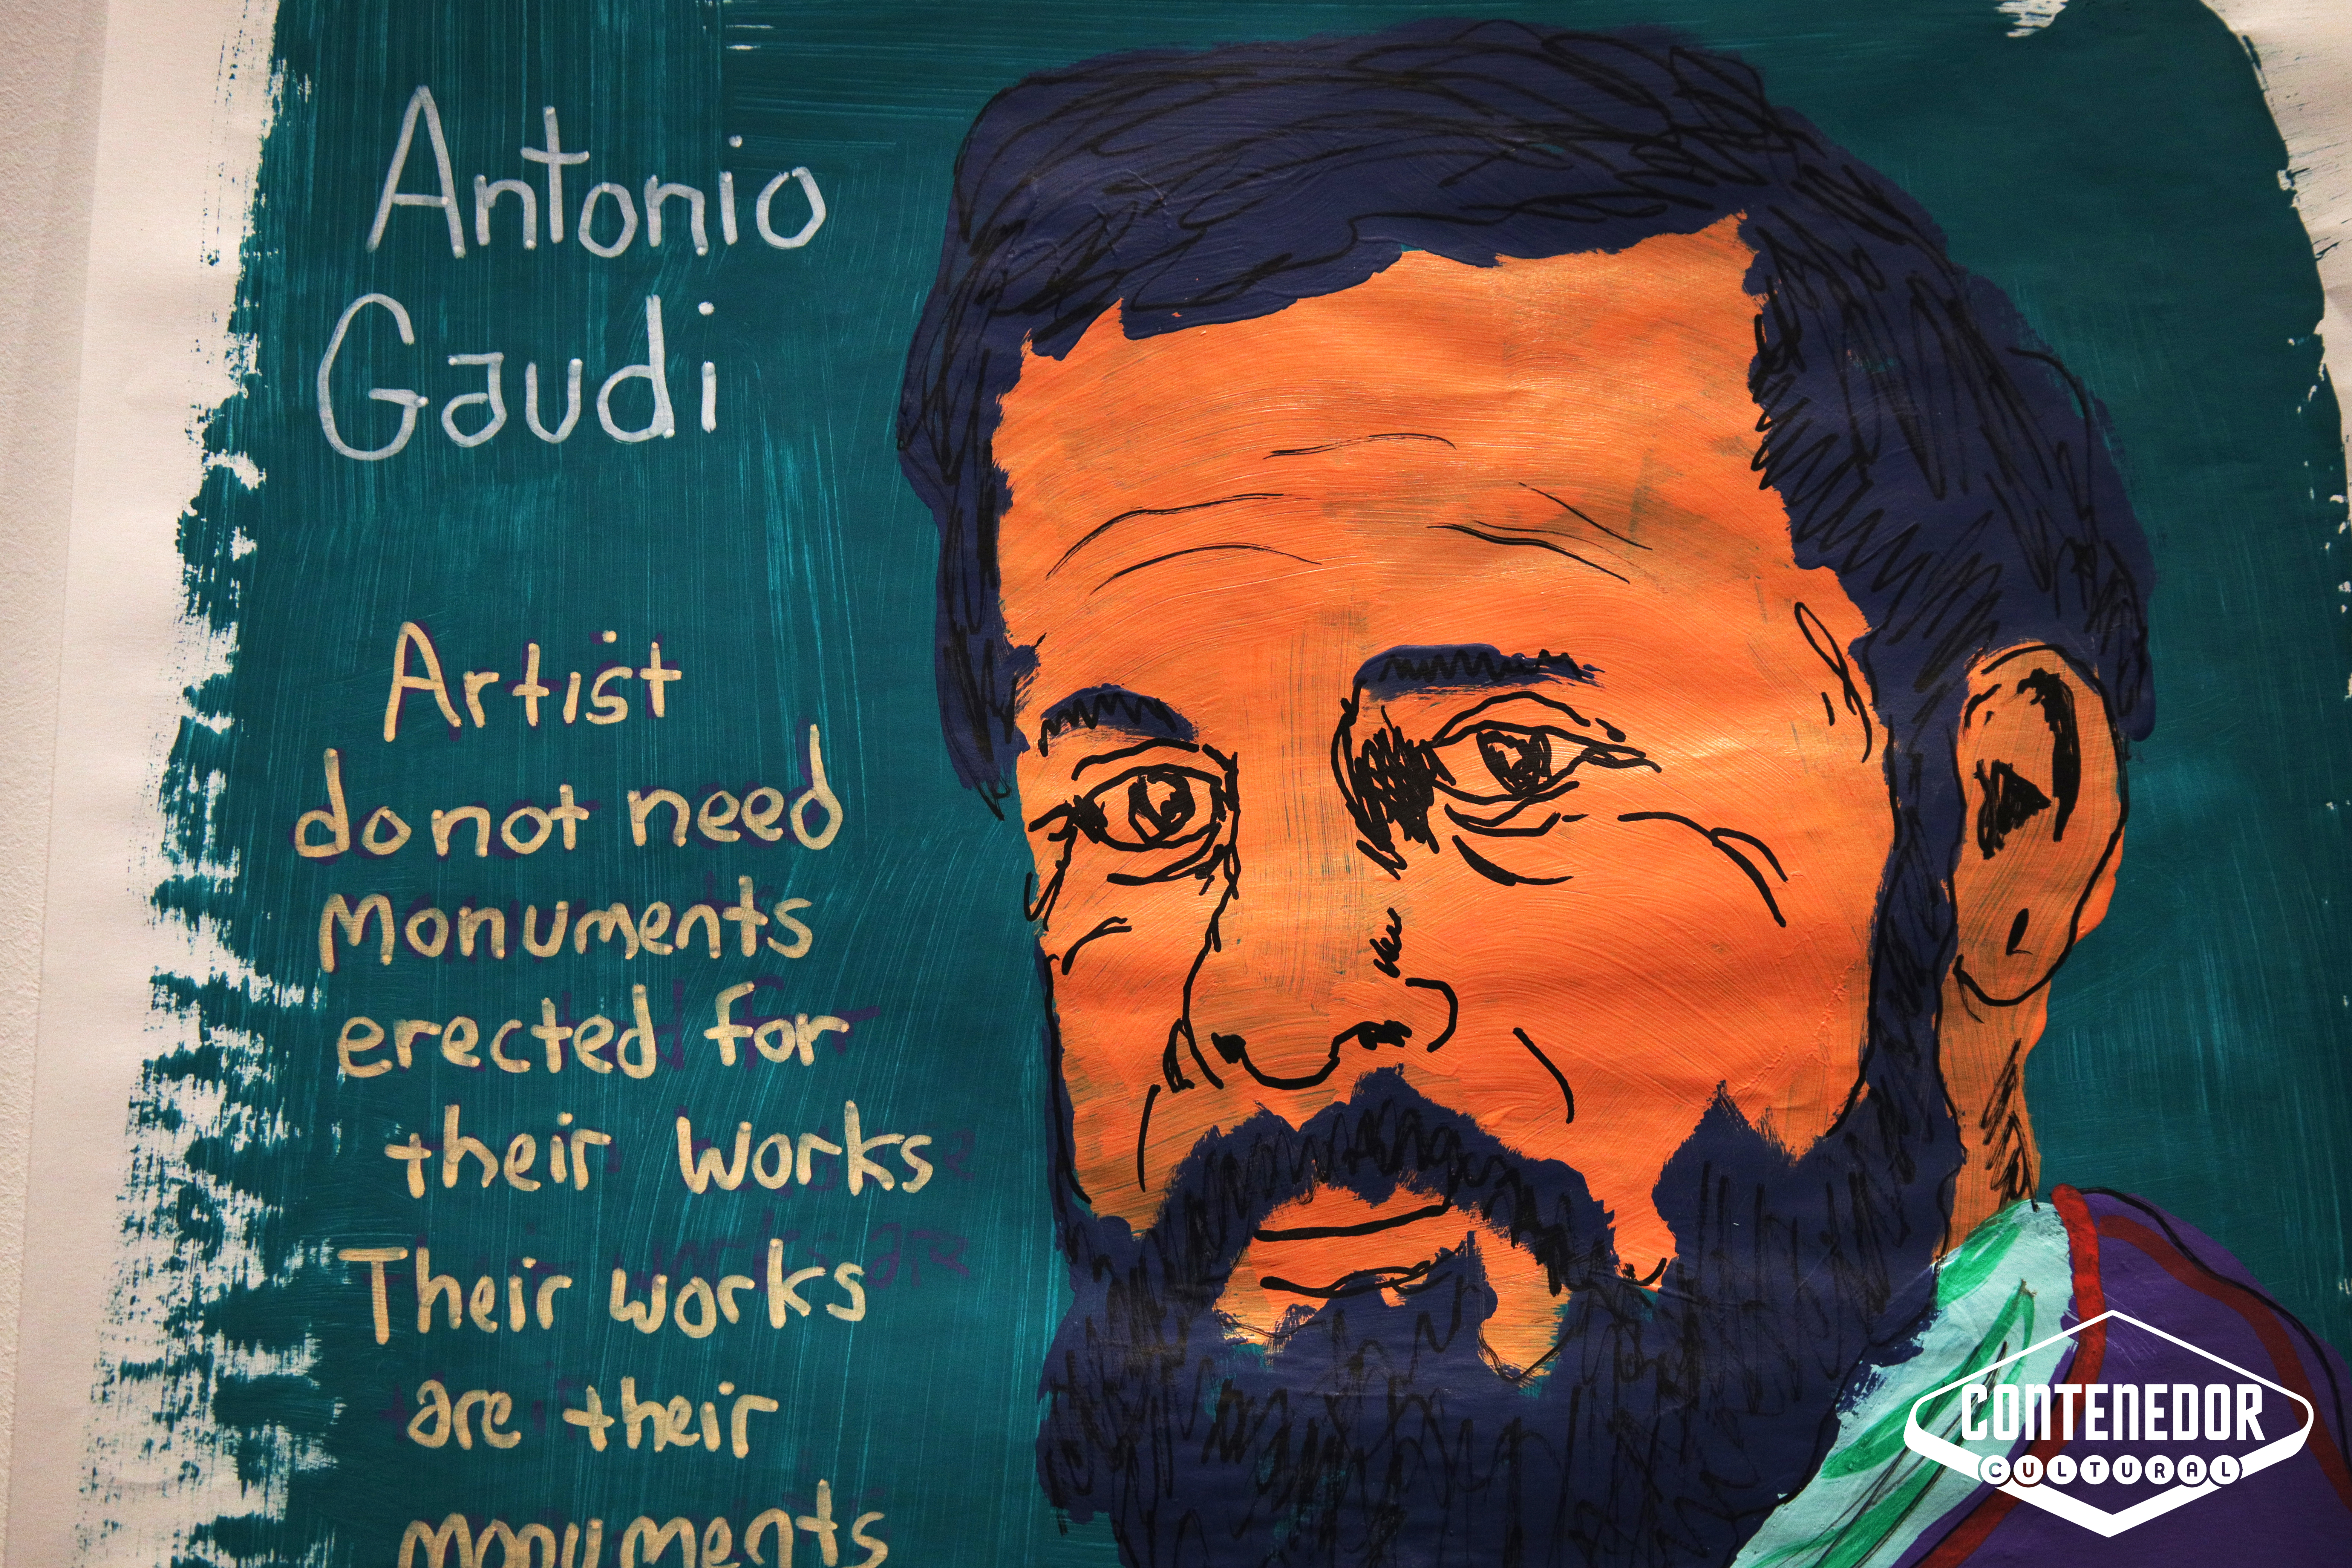 Antonio
Gaudi
Artist
do not need
Monuments
erected for
their works
Their works
are their
monuments
CONTENEDOR
CULTURAL